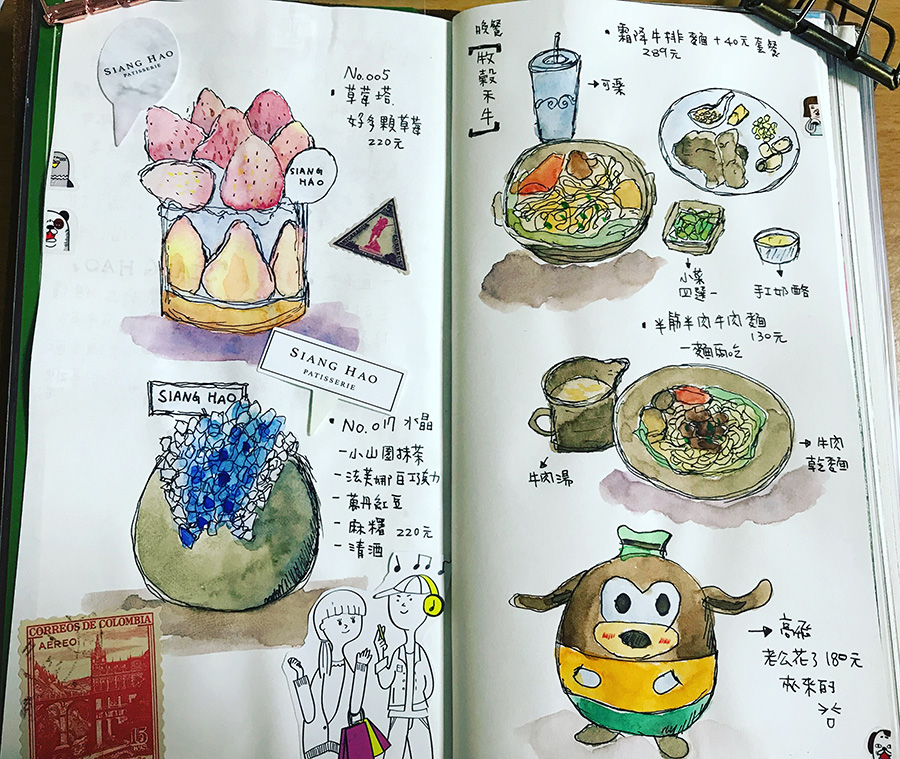 SIANG HAO
PATISSERIE
No.005
• 草莓塔.
好多顆草莓
220元
SIANG
HAO
SIANG HAO
PATISSERIE
SIANG HAO
• No.017 水晶
-小山園抹茶
-法芙娜白巧克力
-萬丹紅豆
-麻糬 220元
-清酒
CORREOS DE COLOMBIA
AEREO
15
晚餐
【牧穀禾牛】
• 霜降牛排麵+40元套餐
289元
→可樂
小菜
四選一
手工奶酪
• 半筋半肉牛肉麵
130元
一麵兩吃
牛肉湯
→牛肉
乾麵
→高飛
老公花了180元
夾來的